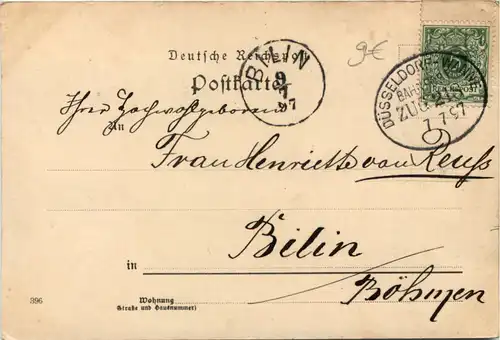 Deutsche Reichspost
Postkarte
BILIN
9
7
97
9€
DÜSSELDORF
BAHNPOST
ZUG
7 7 97
Ihrer Hochwohlgeboren
An
Frau Henriette von Reuss
Bilin
in
Böhmen
396
Wohnung
(Straße und Hausnummer)